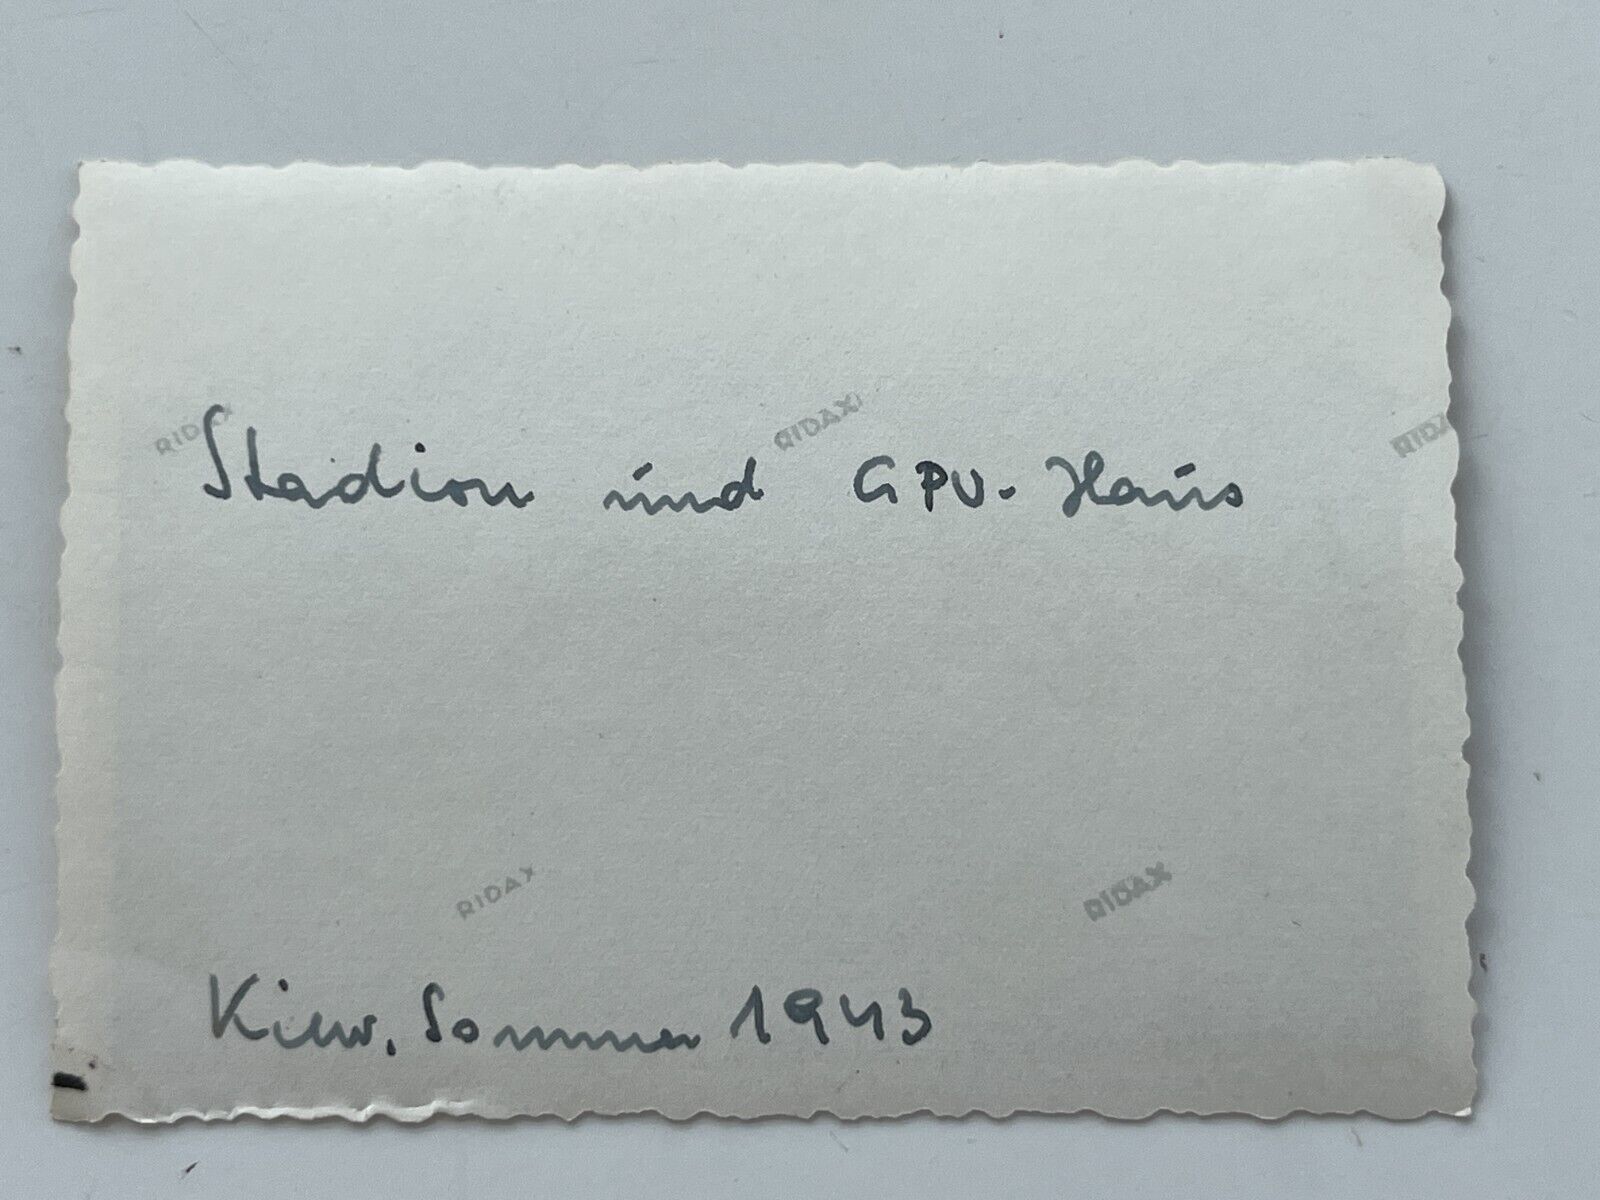 RIDAX RIDAX RIDA
Stadion und GPU-Haus
RIDAX RIDAX
Kiew, Sommer 1943